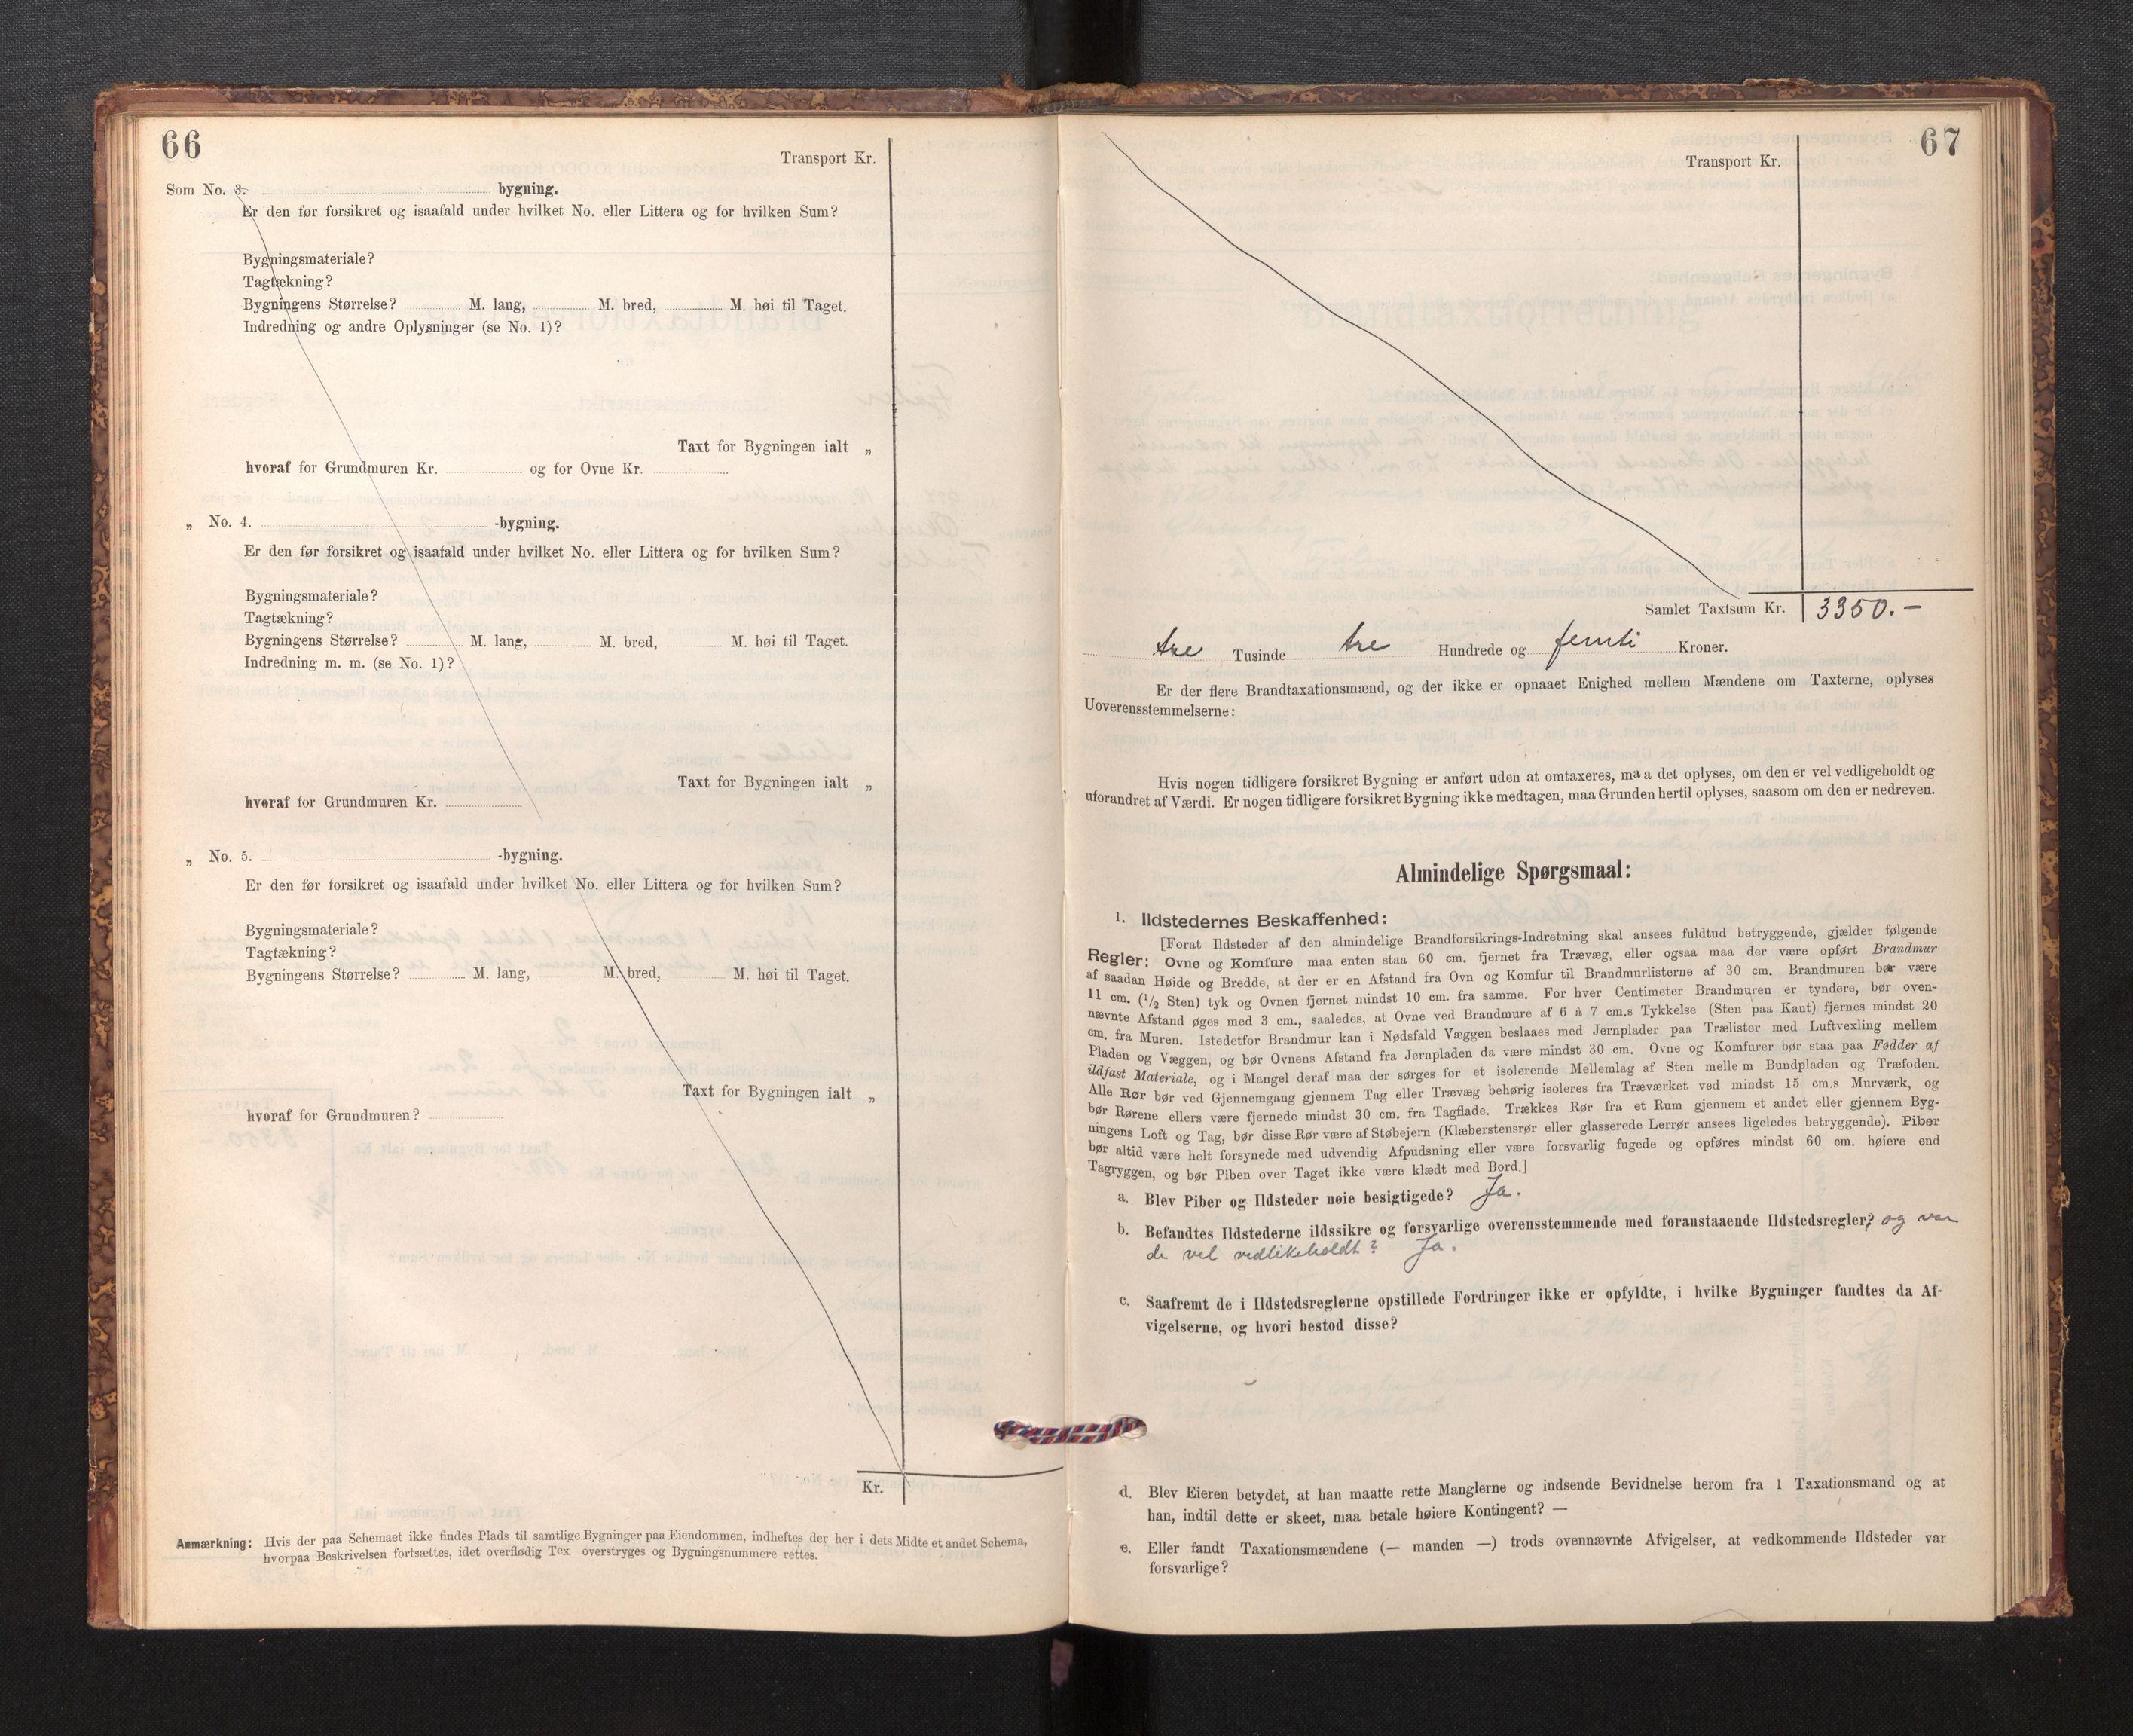 66
Transport Kr.
Som No. 3. bygning.
Er den før forsikret og isaafald under hvilket No. eller Littera og for hvilken Sum?
Bygningsmateriale?
Tagtækning?
Bygningens Størrelse? M. lang, M. bred, M. høi til Taget.
Indredning og andre Oplysninger (se No. 1)?
Taxt for Bygningen ialt „
hvoraf for Grundmuren Kr. og for Ovne Kr.
„ No. 4. -bygning.
Er den før forsikret og isaafald under hvilket No. eller Littera og for hvilken Sum?
Bygningsmateriale?
Tagtækning?
Bygningens Størrelse? M. lang, M. bred, M. høi til Taget.
Indredning m. m. (se No. 1)?
Taxt for Bygningen ialt „
hvoraf for Grundmuren Kr.
„ No. 5. -bygning.
Er den før forsikret og isaafald under hvilket No. eller Littera og for hvilken Sum?
Bygningsmateriale?
Tagtækning?
Bygningens Størrelse? M. lang, M. bred, M. høi til Taget.
Taxt for Bygningen ialt „
hvoraf for Grundmuren?
Kr.
Anmærkning: Hvis der paa Schemaet ikke findes Plads til samtlige Bygninger paa Eiendommen, indheftes der her i dets Midte et andet Schema,
hvorpaa Beskrivelsen fortsættes, idet overflødig Tex overstryges og Bygningsnummere rettes.
67
Transport Kr.
Samlet Taxtsum Kr. 3350.-
tre Tusinde tre Hundrede og femti Kroner.
Er der flere Brandtaxationsmænd, og der ikke er opnaaet Enighed mellem Mændene om Taxterne, oplyses
Uoverensstemmelserne:
Hvis nogen tidligere forsikret Bygning er anført uden at omtaxeres, maa det oplyses, om den er vel vedligeholdt og
uforandret af Værdi. Er nogen tidligere forsikret Bygning ikke medtagen, maa Grunden hertil oplyses, saasom om den er nedreven.
Almindelige Spørgsmaal:
1. Ildstedernes Beskaffenhed:
[Forat Ildsteder af den almindelige Brandforsikrings-Indretning skal ansees fuldtud betryggende, gjælder følgende
Regler: Ovne og Komfure maa enten staa 60 cm. fjernet fra Trævæg, eller ogsaa maa der være opført Brandmur
af saadan Høide og Bredde, at der er en Afstand fra Ovn og Komfur til Brandmurlisterne af 30 cm. Brandmuren bør være
11 cm. (1/2 Sten) tyk og Ovnen fjernet mindst 10 cm. fra samme. For hver Centimeter Brandmuren er tyndere, bør oven-
nævnte Afstand øges med 3 cm., saaledes, at Ovne ved Brandmure af 6 à 7 cm.s Tykkelse (Sten paa Kant) fjernes mindst 20
cm. fra Muren. Istedetfor Brandmur kan i Nødsfald Væggen beslaaes med Jernplader paa Trælister med Luftvexling mellem
Pladen og Væggen, og bør Ovnens Afstand fra Jernpladen da være mindst 30 cm. Ovne og Komfurer bør staa paa Fødder af
ildfast Materiale, og i Mangel deraf maa der sørges for et isolerende Mellemlag af Sten mellem Bundpladen og Træfoden.
Alle Rør bør ved Gjennemgang gjennem Tag eller Trævæg behørig isoleres fra Træværket ved mindst 15 cm.s Murværk, og
bør Rørene ellers være fjernede mindst 30 cm. fra Tagflade. Trækkes Rør fra et Rum gjennem et andet eller gjennem Byg-
ningens Loft og Tag, bør disse Rør være af Støbejern (Klæberstensrør eller glasserede Lerrør ansees ligeledes betryggende). Piber
bør altid være helt forsynede med udvendig Afpudsning eller være forsvarlig fugede og opføres mindst 60 cm. høiere end
Tagryggen, og bør Piben over Taget ikke være klædt med Bord.]
a. Blev Piber og Ildsteder nøie besigtigede? Ja.
b. Befandtes Ildstederne ildssikre og forsvarlige overensstemmende med foranstaaende Ildstedsregler? og var
de vel vedlikeholdt? Ja.
c. Saafremt de i Ildstedsreglerne opstillede Fordringer ikke er opfyldte, i hvilke Bygninger fandtes da Af-
vigelserne, og hvori bestod disse?
d. Blev Eieren betydet, at han maatte rette Manglerne og indsende Bevidnelse herom fra 1 Taxationsmand og at
han, indtil dette er skeet, maa betale høiere Kontingent? —
e. Eller fandt Taxationsmændene (— manden —) trods ovennævnte Afvigelser, at vedkommende Ildsteder var
forsvarlige?